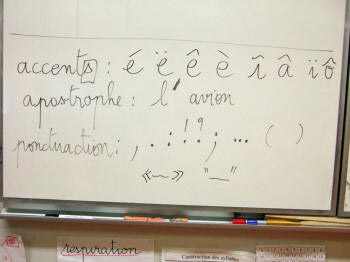 accents : é ë ê è î â ï ô
apostrophe : l'avion
ponctuaction : , . : ! ? ; ... ( )
« — » "__"
respiration
Construction des syllabes